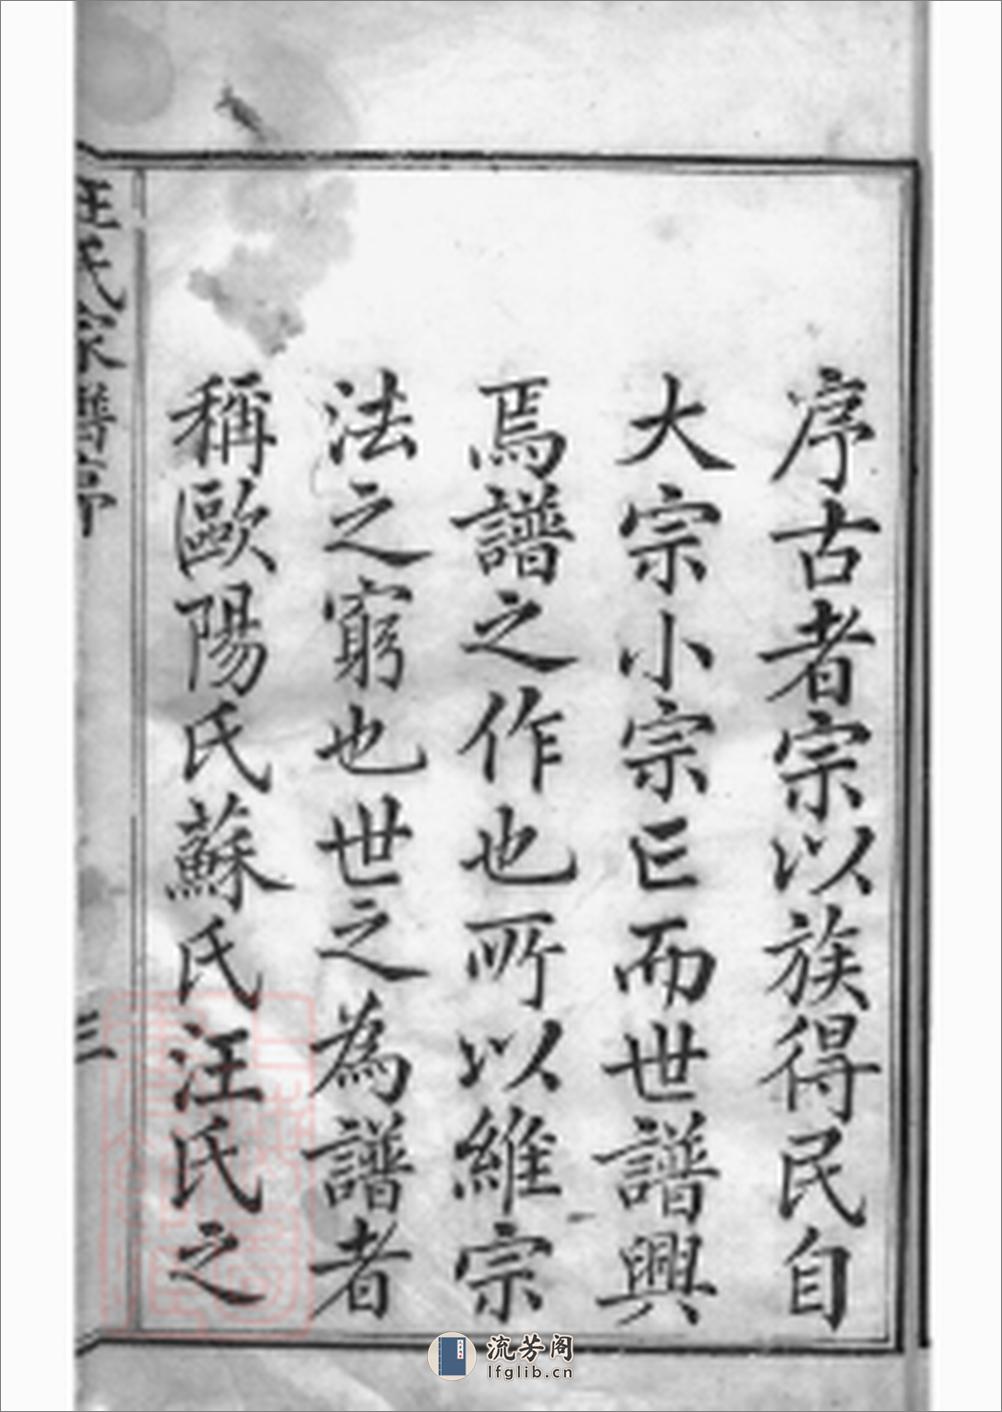 序古者宗以族得民自
大宗小宗亡而世譜興
焉譜之作也所以維宗
法之窮也世之為譜者
稱歐陽氏蘇氏汪氏之
汪氏家譜序
三
流芳阁
lfglib.cn